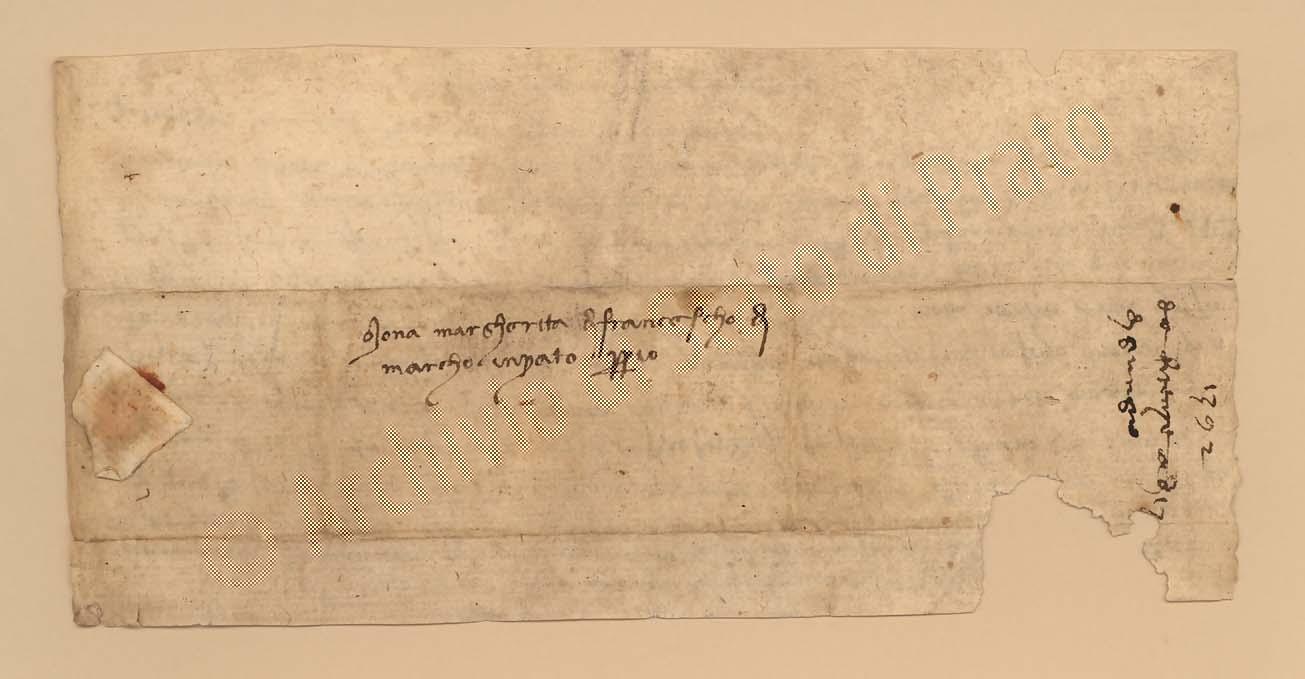 Mona margherita di franciescho di
marcho in prato propio
1392
da firenze a dì 17
di giennaio
© Archivio di Stato di Prato